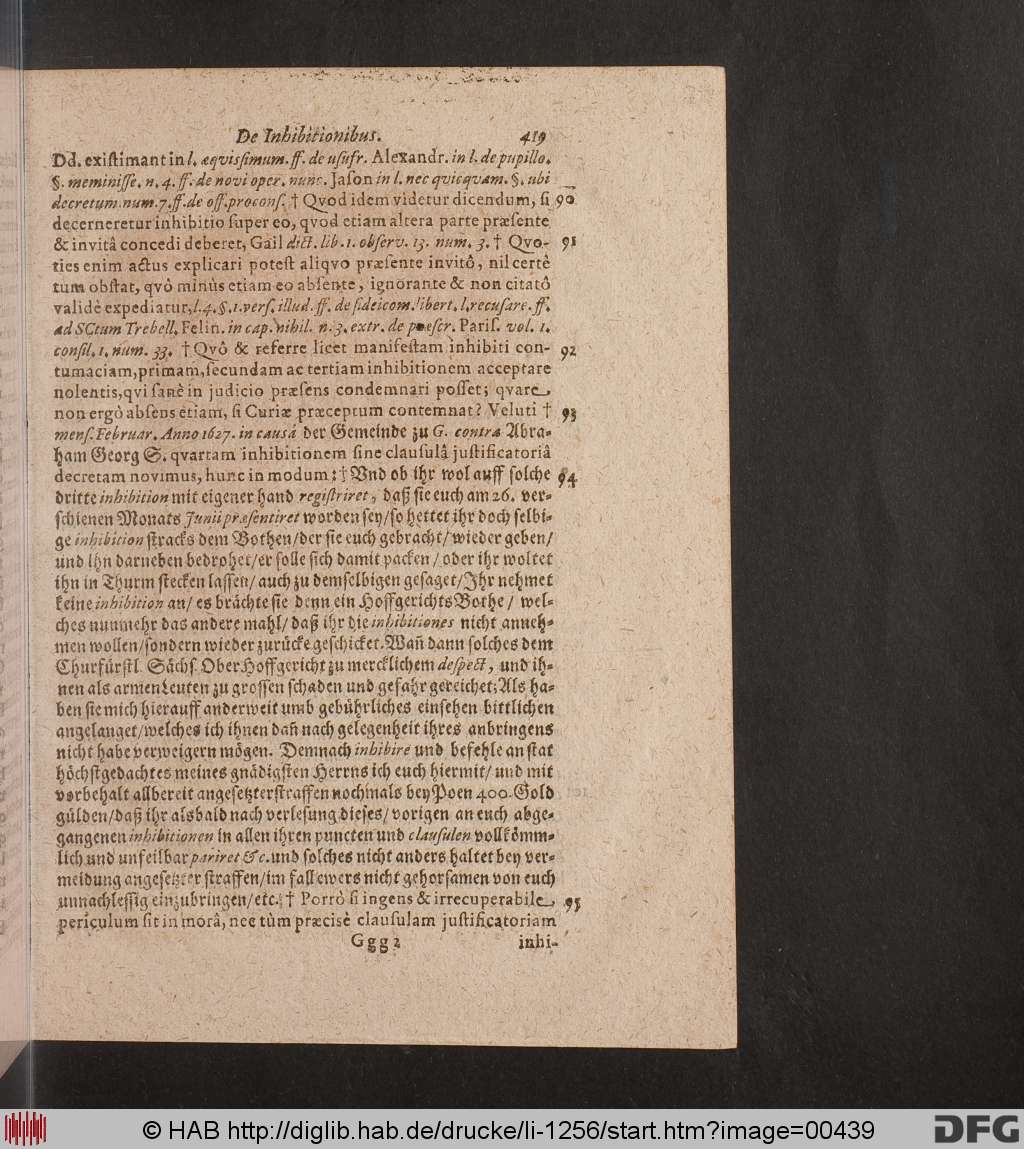 De Inhibitionibus. 419
Dd. existimant in l. æqvissimum. ff. de usufr. Alexandr. in l. de pupillo.
§. meminisse. n. 4. ff. de novi oper. nunc. Jason in l. nec qvicqvam. §. ubi
decretum. num. 7. ff. de off. procons. † Qvod idem videtur dicendum, si 90
decerneretur inhibitio super eo, qvod etiam altera parte præsente
& invitâ concedi deberet, Gail dict. lib. 1. observ. 13. num. 3. † Qvo- 91
ties enim actus explicari potest aliqvo præsente invitô, nil certè
tum obstat, qvò minùs etiam eo absente, ignorante & non citatô
validè expediatur, l. 4. §. 1. vers. illud. ff. de fideicom. libert. l. recusare. ff.
ad SCtum Trebell. Felin. in cap. nihil. n. 3. extr. de præscr. Paris. vol. 1.
consil. 1. num. 33. † Qvô & referre licet manifestam inhibiti con- 92
tumaciam, primam, secundam ac tertiam inhibitionem acceptare
nolentis, qvi sanè in judicio præsens condemnari posset; qvare
non ergò absens etiam, si Curiæ præceptum contemnat? Veluti † 93
mens. Februar. Anno 1627. in causâ der Gemeinde zu G. contra Abra-
ham Georg S. qvartam inhibitionem sine clausulâ justificatoriâ
decretam novimus, hunc in modum: † Vnd ob ihr wol auff solche 94
dritte inhibition mit eigener hand registriret, daß sie euch am 26. ver-
schienen Monats Junii præsentiret worden sey/ so hettet ihr doch selbi-
ge inhibition stracks dem Bothen/ der sie euch gebracht/ wieder geben/
und ihn darneben bedrohet/ er solle sich damit packen/ oder ihr woltet
ihn in Thurm stecken lassen/ auch zu demselbigen gesaget/ Ihr nehmet
keine inhibition an/ es brächte sie denn ein HoffgerichtsBothe/ wel-
ches nunmehr das andere mahl/ daß ihr die inhibitiones nicht anneh-
men wollen/ sondern wieder zurücke geschicket. Wañ dann solches dem
Churfürstl. Sächs. OberHoffgericht zu mercklichem despect, und ih-
nen als armen Leuten zu grossen schaden und gefahr gereichet; Als ha-
ben sie mich hierauff anderweit umb gebührliches einsehen bittlichen
angelanget/ welches ich ihnen dañ nach gelegenheit ihres anbringens
nicht habe verweigern mögen. Demnach inhibire und befehle an stat
höchstgedachtes meines gnädigsten Herrns ich euch hiermit/ und mit
vorbehalt allbereit angesetzter straffen nochmals bey Poen 400. Gold
gülden/ daß ihr alsbald nach verlesung dieses/ vorigen an euch abge-
gangenen inhibitionen in allen ihren puncten und clausulen vollkömm-
lich und unfeilbar pariret &c. und solches nicht anders haltet bey ver-
meidung angesetzter straffen/ im fall ewers nicht gehorsamen von euch
unnachlessig einzubringen/ etc. † Porrò si ingens & irrecuperabile 95
periculum sit in morâ, nec tùm præcisè clausulam justificatoriam
Ggg 2 inhi-
© HAB http://diglib.hab.de/drucke/li-1256/start.htm?image=00439
DFG